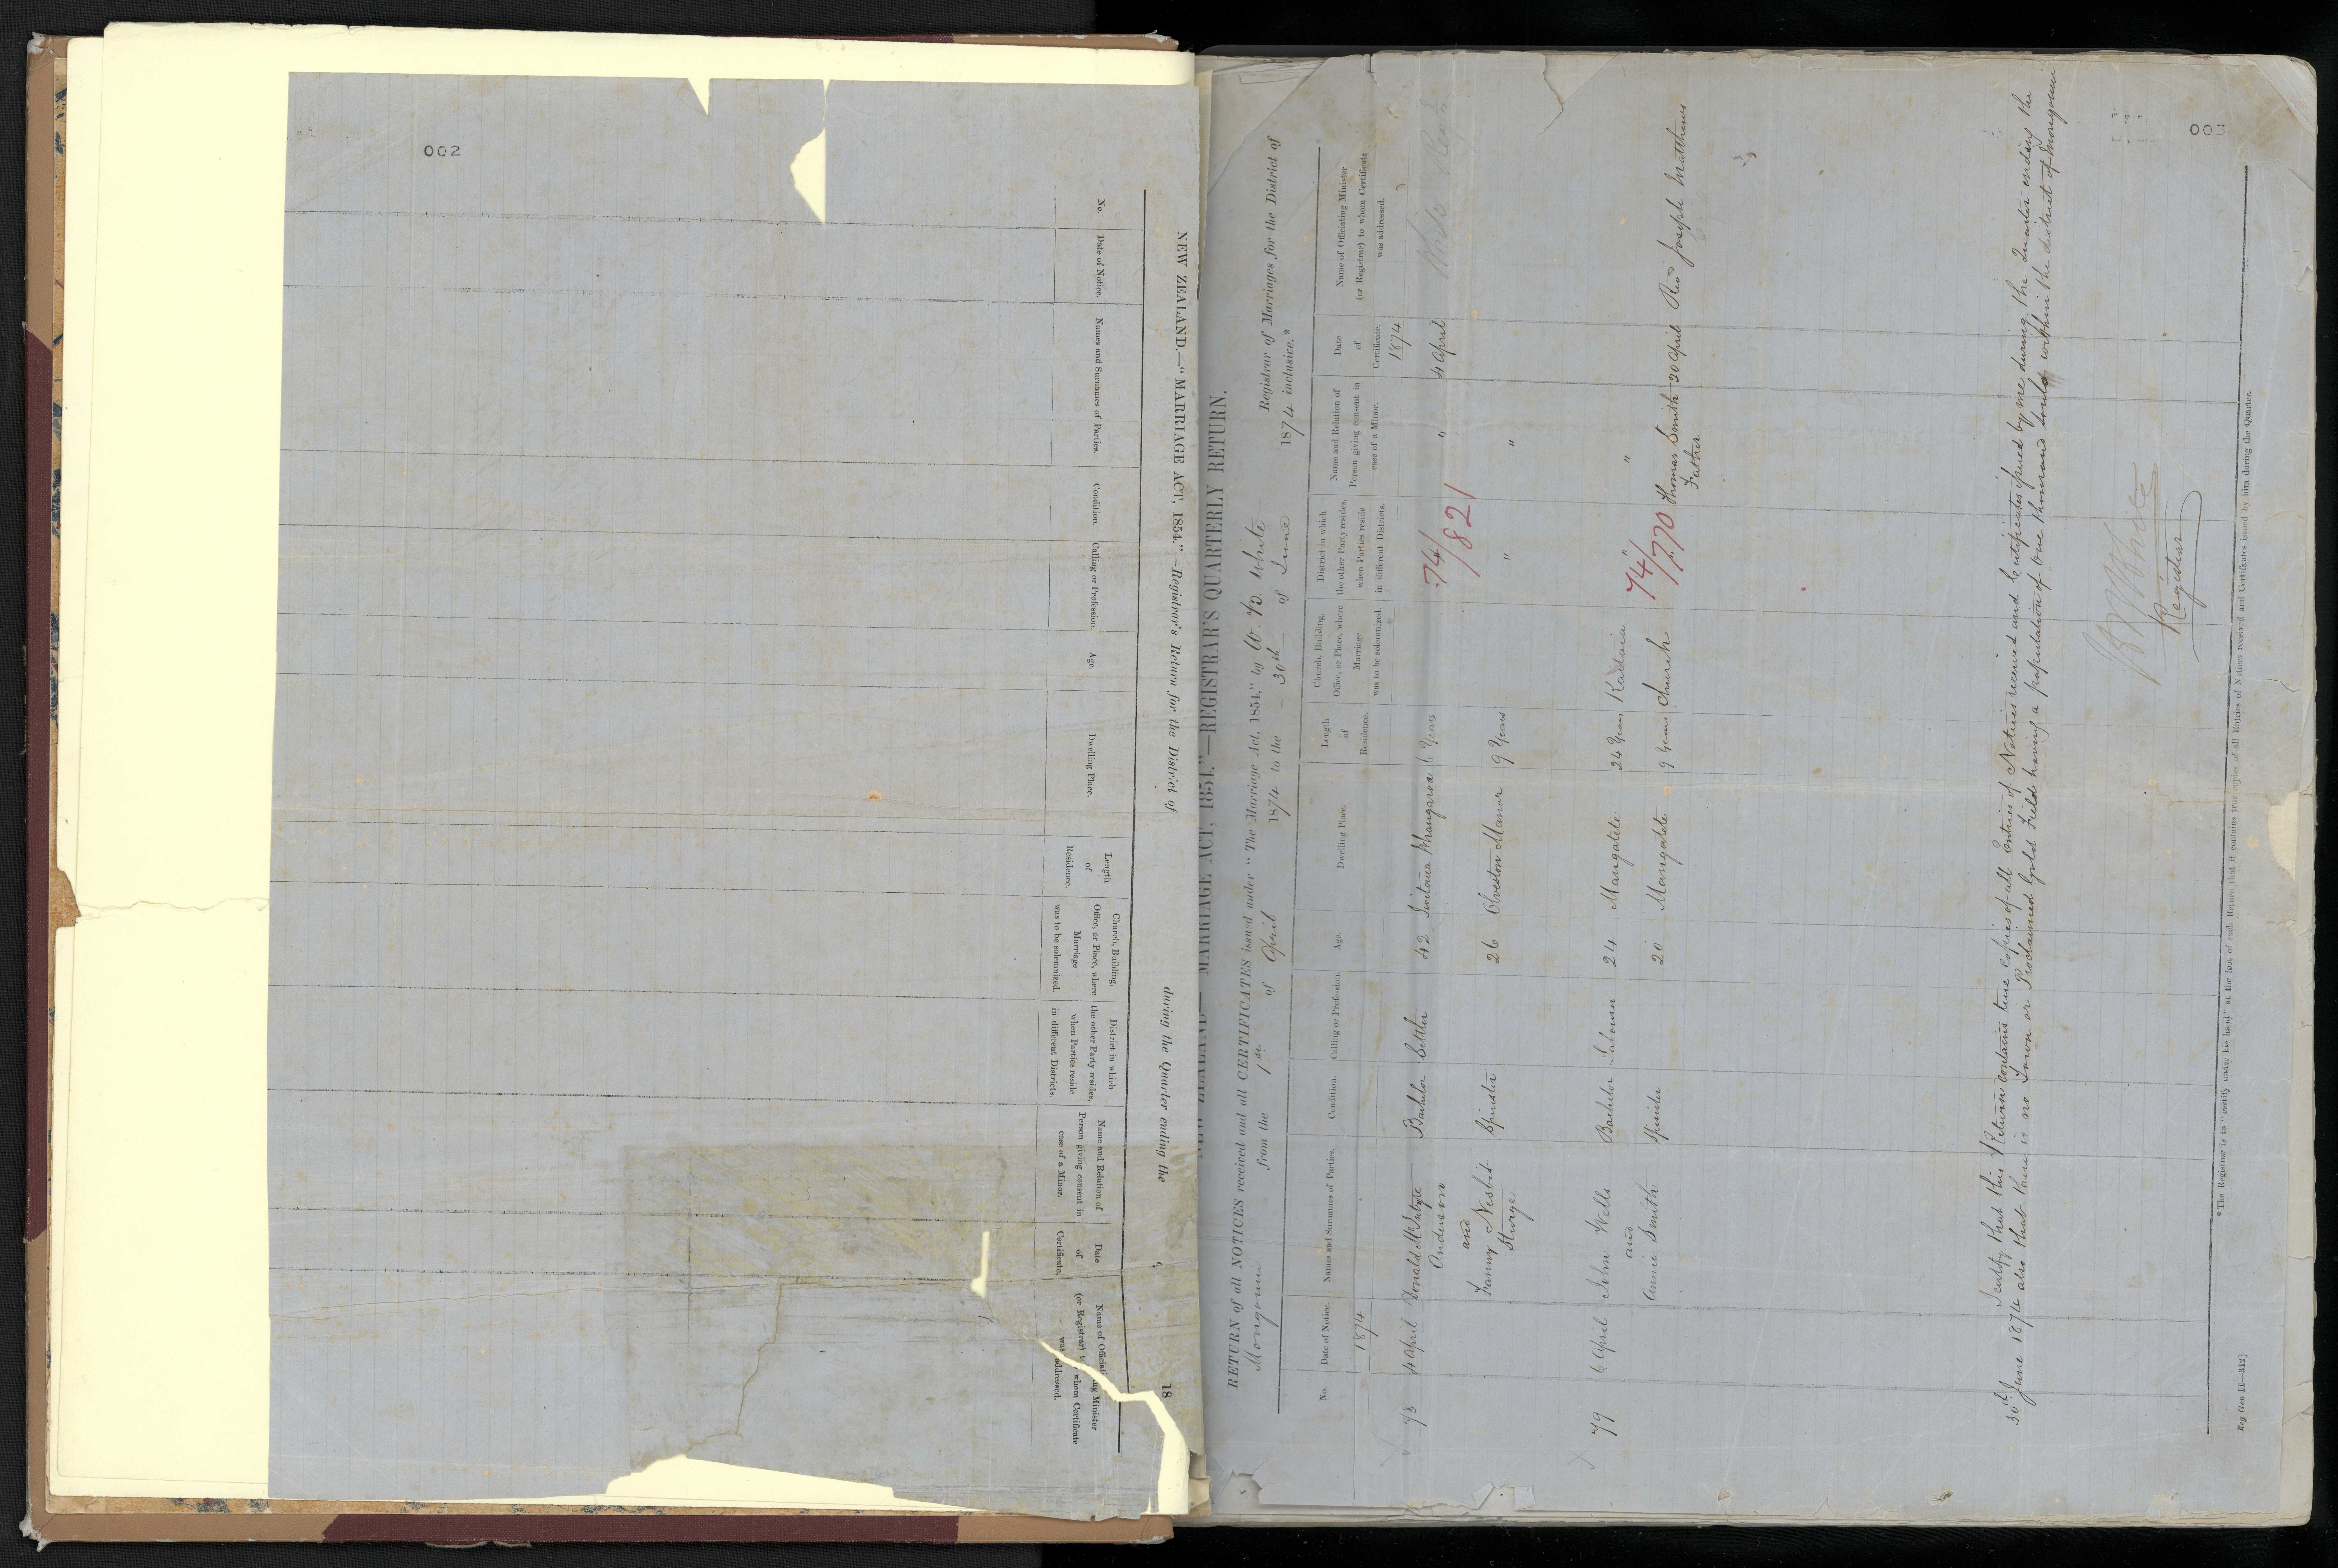 002
NEW ZEALAND.—"MARRIAGE ACT, 1854."—Registrar's Return for the District of during the Quarter ending the 18
No.
Date of Notice.
Names and Surnames of Parties.
Condition.
Calling or Profession.
Age.
Dwelling Place.
Length
of
Residence.
Church, Building,
Office, or Place, where
Marriage
was to be solemnized.
District in which
the other Party resides,
when Parties reside
in different Districts.
Name and Relation of
Person giving consent in
case of a Minor.
Date
of
Certificate.
Name of
Minister
(or Registrar)
whom Certificate
addressed.
NEW ZEALAND—MARRIAGE ACT, 1854."—REGISTRAR'S QUARTERLY RETURN.
RETURN of all NOTICES received and all CERTIFICATES issued under "The Marriage Act, 1854," by White Registrar of Marriages for the District of
Mongonui from the 1st of April 1874 to the 30th of June 1874 inclusive.*
No.
Date of Notice.
Names and Surnames of Parties.
Condition.
Calling or Profession.
Age.
Dwelling Place.
Length
of
Residence.
Church, Building,
Office, or Place, where
Marriage
was to be solemnized.
District in which
the other Party resides,
when Parties reside
in different Districts.
Name and Relation of
Person giving consent in
case of a Minor.
Date
of
Certificate.
Name of Officiating Minister
(or Registrar) to whom Certificate
was addressed.
1874
1874
4 April Donald McIntyre Bachelor Settler 42 Whangaroa 6 Years " 4 April
Anderson
74/821
and
Fanny Nesbit Spinster 26 Olveston Manor 9 Years " "
Sturge
79 6 April John Wells Bachelor 24 Mangatete 24 Years Kaitaia " "
and
74/770
Annie Smith Spinster 20 Mangatete 9 Years Church Thomas Smith 20 April Revd Joseph Matthews
Father
I certify that this Return contains true copies of all Entries of Notices received and Certificates issued by me during the Quarter ending the
30th June 1874 also that there is no Town or Proclaimed Gold Field having a population of One thousand souls within the district of Mongonui
White
Registrar
* The Registrar is to "certify under his hand" at the foot of each Return that it contains true copies of all Entries of Notices received and Certificates issued by him during the Quarter.